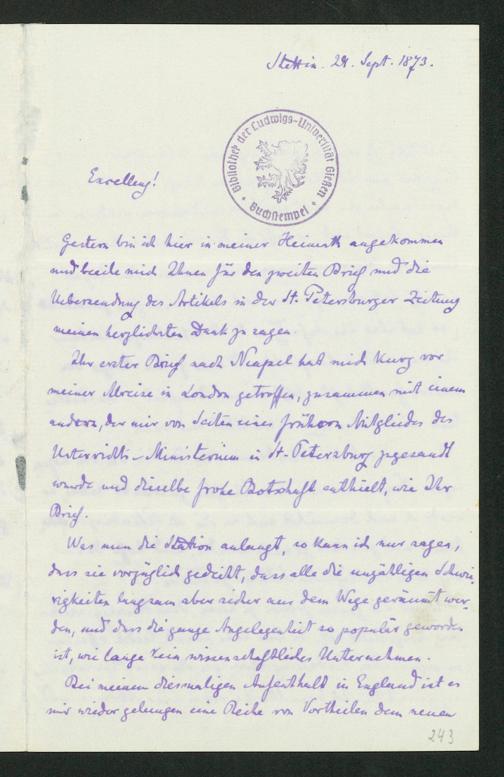 Stettin. 24. Sept. 1873.
Bibliothek der Ludwigs-Universität Gießen
Buchstempel
Excellenz!
Gestern bin ich hier in meiner Heimath angekommen
und beeile mich Ihnen für den zweiten Brief und die
Uebersendung des Artikels in der St. Petersburger Zeitung
meinen herzlichsten Dank zu sagen.
Ihr erster Brief nach Neapel hat mich kurz vor
meiner Abreise in London getroffen, zusammen mit einem
andern, der mir von Seiten eines frühern Mitgliedes des
Unterrichts-Ministerium in St. Petersburg zugesandt
wurde und dieselbe frohe Botschaft enthielt, wie Ihr
Brief.
Was nun die Station anlangt, so kann ich nur sagen,
dass sie vorzüglich gedeiht, dass alle die unzähligen Schwie-
rigkeiten langsam aber sicher aus dem Wege geräumt wer-
den, und dass die ganze Angelegenheit so populär geworden
ist, wie lange kein wissenschaftliches Unternehmen.
Bei meinem diesmaligen Aufenthalt in England ist es
mir wieder gelungen eine Reihe von Vortheilen dem neuen
243